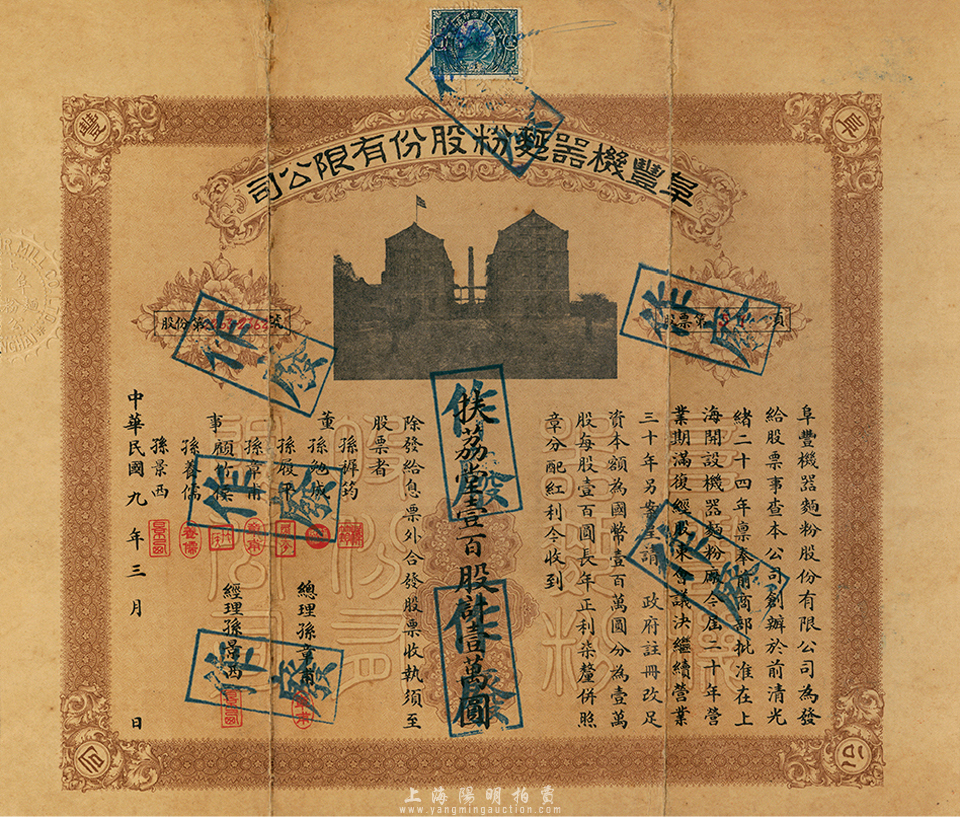 阜豐機器麵粉股份有限公司
阜
豐
公
司
股票第
項
股份第
號
阜豐機器麵粉股份有限公司為發
給股票事查本公司創辦於前清光
緒二十四年禀奉前商部批准在上
海開設機器麵粉厰今屆二十年營
業期滿復經股東會議決繼續營業
三十年另案呈請 政府註冊改足
資本額為國幣壹百萬圓分為壹萬
股每股壹百圓長年正利柒釐併照
章分配紅利今收到
扶荔堂壹百股計壹萬圓
除發給息票外合發股票收執須至
股票者
董事
孫履平
孫章甫
孫養儒
孫景西
總理孫章甫
經理孫景西
中華民國九年三月 日
作廢
作廢
作廢
作廢
作廢
作廢
作廢
上海陽明拍賣
www.yangmingauction.com